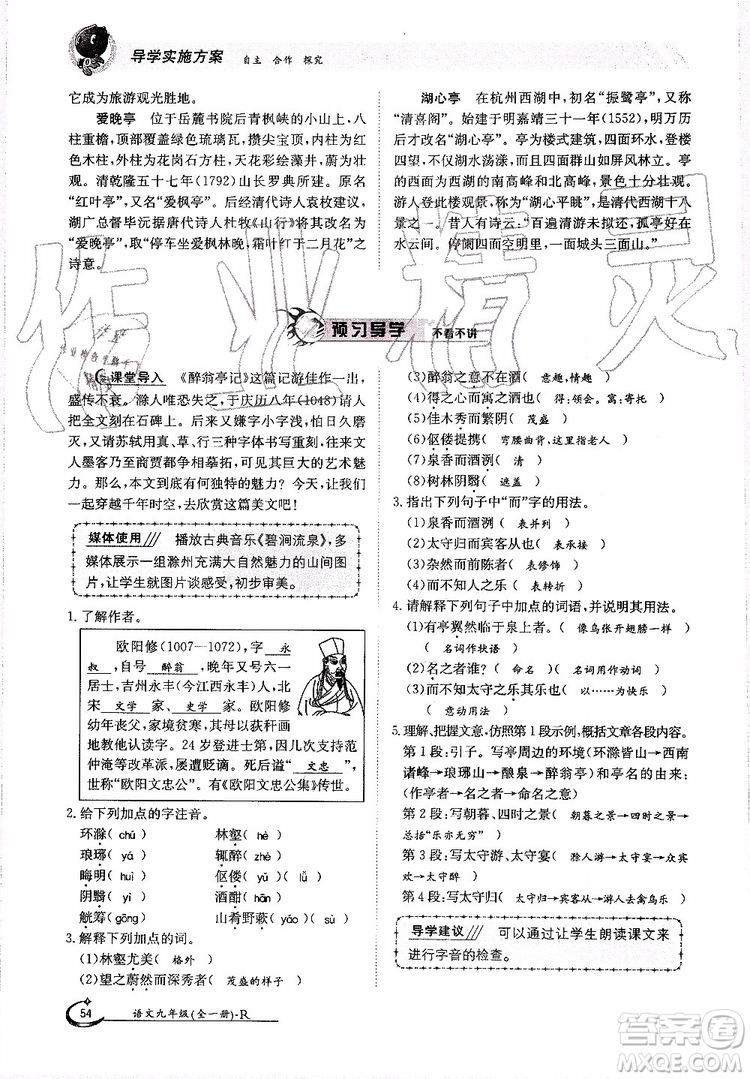 导学实施方案 自主 合作 探究
它成为旅游观光胜地。
爱晚亭 位于岳麓书院后青枫峡的小山上,八
柱重檐,顶部覆盖绿色琉璃瓦,攒尖宝顶,内柱为红
色木柱,外柱为花岗石方柱,天花彩绘藻井,蔚为壮
观。清乾隆五十七年(1792)山长罗典所建。原名
“红叶亭”,又名“爱枫亭”。后经清代诗人袁枚建议,
湖广总督毕沅据唐代诗人杜牧《山行》将其更名为
“爱晚亭”,取“停车坐爱枫林晚,霜叶红于二月花”之
诗意。
湖心亭 在杭州西湖中,初名“振鹭亭”,又称
“清喜阁”。初建于明嘉靖三十一年(1552),明万历
后才改名“湖心亭”。亭为楼式建筑,四面环水,登楼
四望,不仅湖水荡漾,而且四面群山如屏风林立。亭
的西面为西湖的南高峰和北高峰,景色十分壮观。
游人登此楼观景,称为“湖心平眺”,是清代西湖十八
景之一。昔人有诗云:“百遍清游未拟还,孤亭好在
水云间。停阑四面空明里,一面城头三面山。”
预习导学 不看不讲
课堂导入 《醉翁亭记》这篇记游佳作一出,
盛传不衰。滁人唯恐失之,于庆历八年(1048)请人
把全文刻在石碑上。后来又嫌字小刻浅,怕日久磨
灭,又请苏轼用真、草、行三种字体书写,刻于碑。文
人墨客乃至商贾都争相摹拓,可见其巨大的艺术魅
力。那么,本文到底有何独特的魅力?今天,让我们一
起穿越千年时空,去欣赏这篇美文吧!
媒体使用 播放古典音乐《碧涧流泉》,多
媒体展示一组滁州充满大自然魅力的山间图
片,让学生就图片谈感受,初步审美。
1. 了解作者。
欧阳修(1007—1072),字 永
叔 ,自号 醉翁 ,晚年又号六一
居士,吉州永丰(今江西永丰)人,北
宋 文学 家、 史学 家。欧阳修
幼年丧父,家境贫寒,母亲以荻画
地教他认读字。24 岁登进士第,因几次支持范
仲淹等的改革,屡遭贬谪。死后谥“ 文忠 ”,
世称“欧阳文忠公”。有《欧阳文忠公集》传世。
2. 给下列加点的字注音。
环滁( chú ) 林壑( hè )
琅琊( yá ) 辄醉( zhé )
晦明( huì ) 伛偻( yǔ )( lǚ )
阴翳( yì ) 酒酣( hān )
觥筹( gōng ) 山肴野蔌( yáo )( sù )
3. 解释下列加点的词。
(1)林壑尤美( 格外 )
(2)望之蔚然而深秀者( 茂盛的样子 )
(3)醉翁之意不在酒( 意趣,情趣 )
(4)得之心而寓之酒也( 得:领会。寓:寄托 )
(5)佳木秀而繁阴( 茂盛 )
(6)伛偻提携( 弯腰曲背,这里指老人 )
(7)泉香而酒洌( 清 )
(8)树林阴翳( 遮盖 )
3. 指出下列句子中“而”字的用法。
(1)泉香而酒洌( 表并列 )
(2)太守归而宾客从也( 表承接 )
(3)杂然而前陈者( 表修饰 )
(4)而不知人之乐( 表转折 )
4. 请解释下列句子中加点的词语,并写出用法。
(1)有亭翼然临于泉上者。( 像鸟张开翅膀一样 )
( 名词作状语 )
(2)名之者谁?( 命名 )( 名词用作动词 )
(3)而不知太守之乐其乐也( 以……为快乐 )
( 意动用法 )
5. 理解、把握文意,仿照第 1 段示例,概括文章各段内容。
第 1 段:引子。写亭周边的环境(环滁皆山→西南
诸峰→琅琊山→酿泉→醉翁亭)和亭的由来:
(作亭者→名亭者→亭名来历)
第 2 段:写朝暮、四时之景( 朝暮之景→四时之景→
总括“乐亦无穷” )
第 3 段:写太守游、太守宴( 滁人游→太守宴→众宾
欢→太守醉 )
第 4 段:写太守归( 太守归→宾客从→游人去禽鸟乐 )
导学建议 可以通过让学生朗读课文来
进行字音的检查。
54 语文九年级(全一册)-R
作业精灵
MXQE.COM